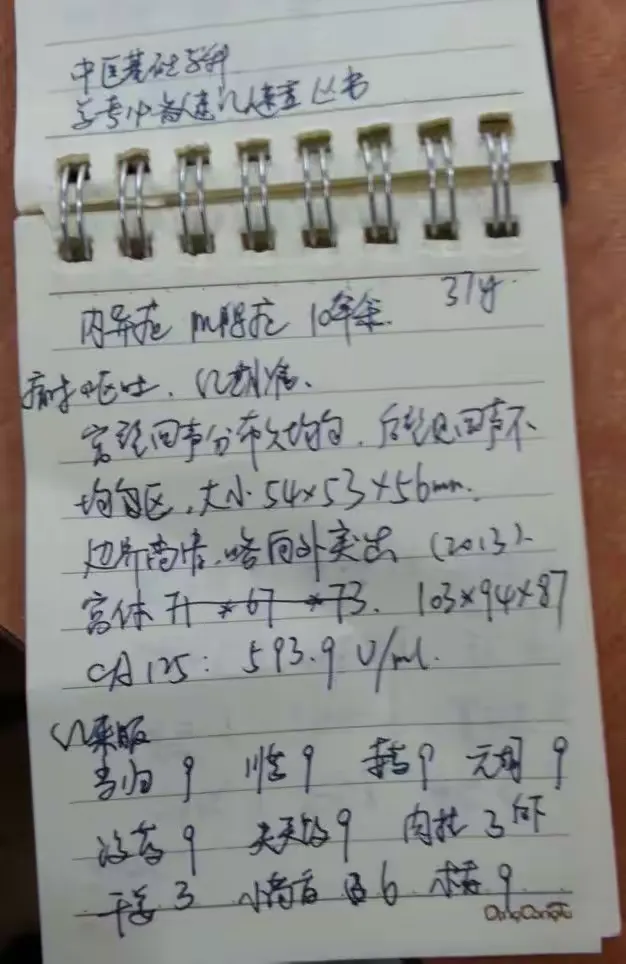 中医基础学科
学考必备速记速查丛书
内异症 腺肌症 10年余. 37y.
痛时呕吐.
宫壁回声分布欠均匀, 后壁见回声不
均匀区, 大小 54×53×56mm.
边界尚清, 略向外突出 (2013).
宫体 71*67*73. 103×94×87
CA125: 593.9 U/ml.
当归 9 川芎 9 赤芍 9 元胡 9
没药 9 失笑散 9 肉桂 3 后下
干姜 3 小茴香 6 9